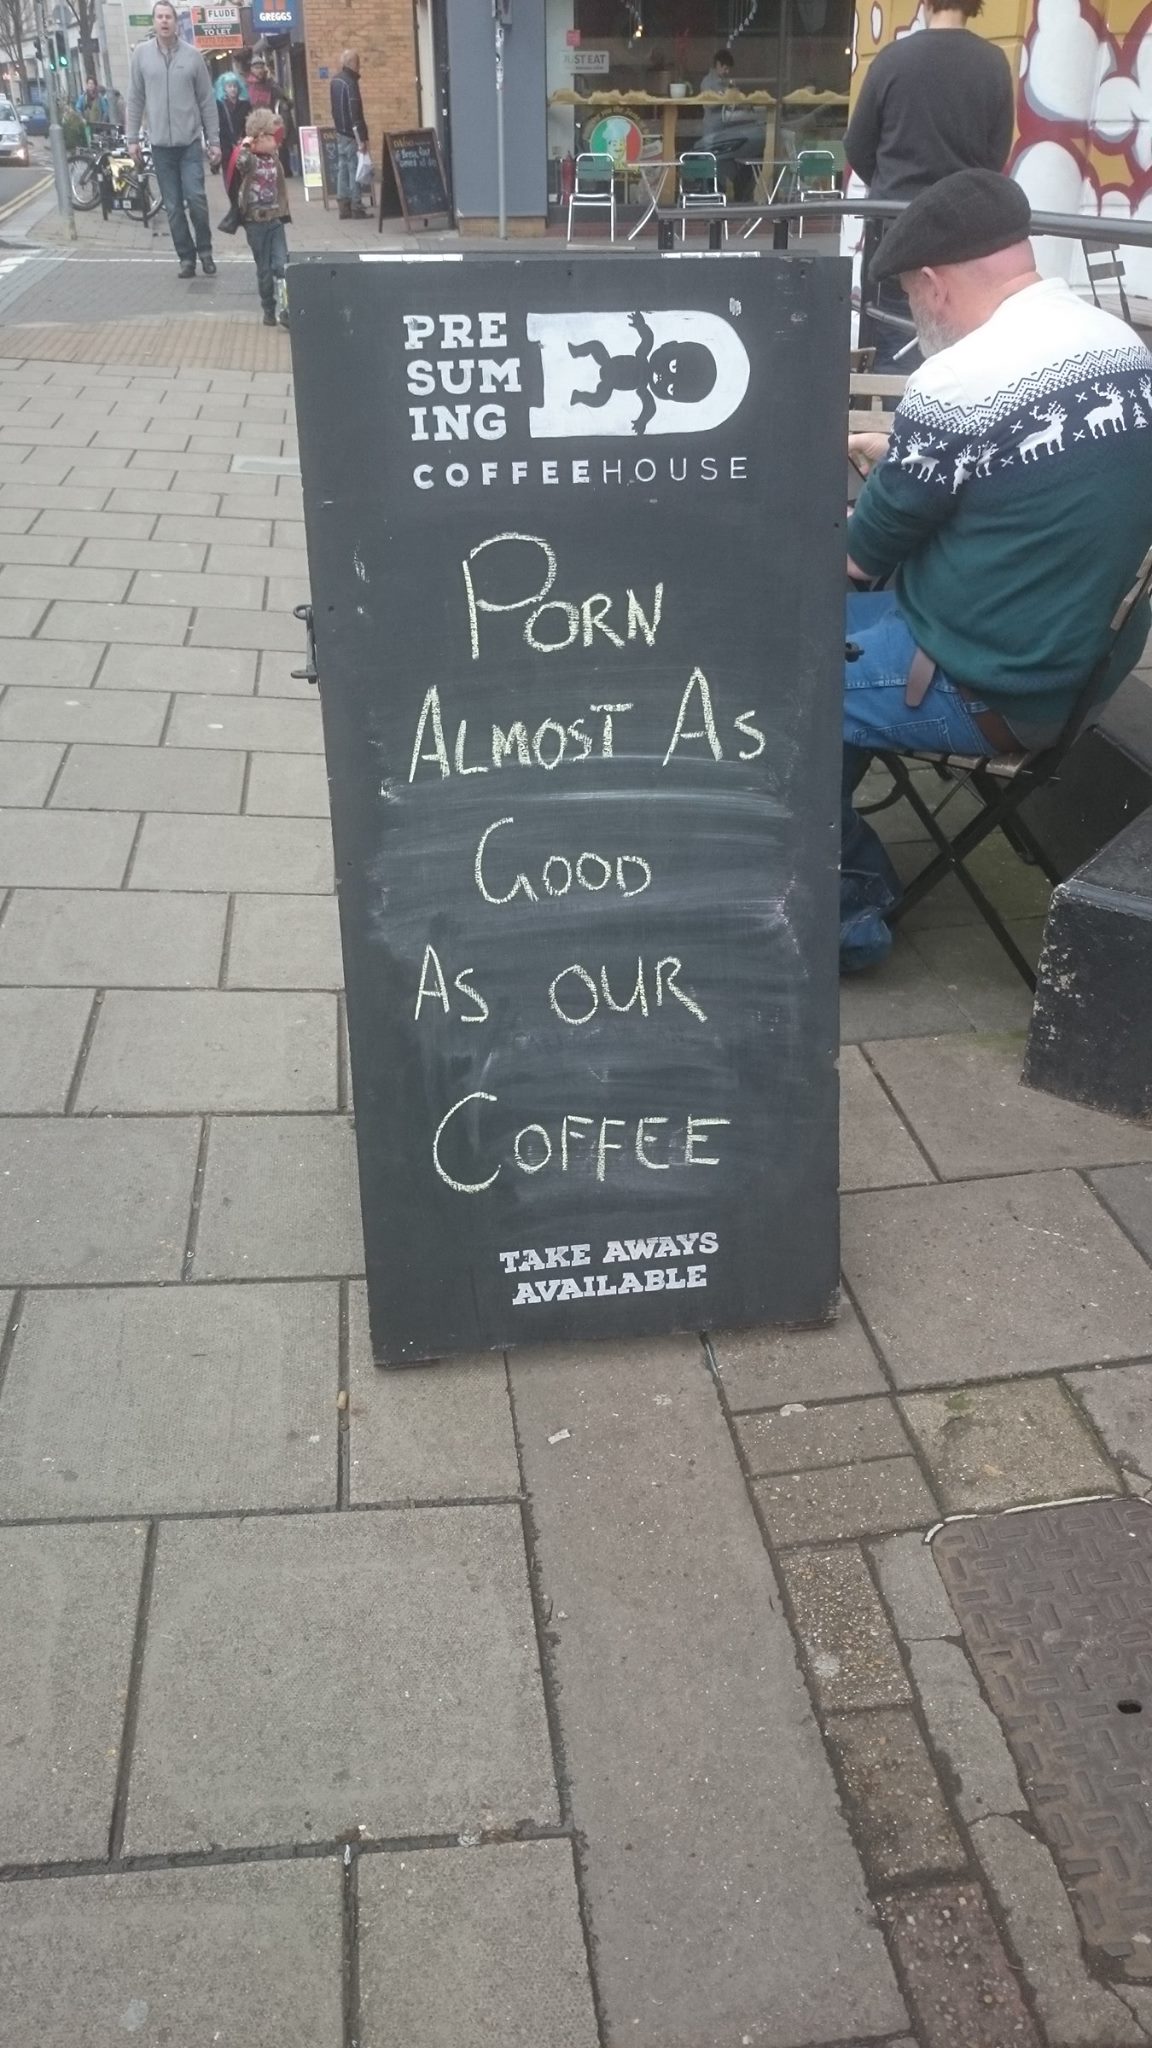 FLUDE
TO LET
GREGGS
JUST EAT
PRE
SUM
ING
ED
COFFEEHOUSE
PORN
ALMOST AS
GOOD
AS OUR
COFFEE
TAKE AWAYS
AVAILABLE